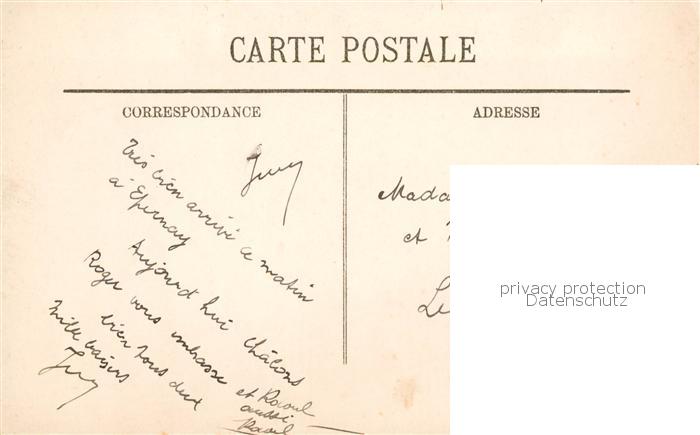 CARTE POSTALE
CORRESPONDANCE
ADRESSE
Très bien arrivé ce matin
à Epernay
Aujourd'hui Châlons
Roger vous embrasse
bien tous deux
mille baisers
et Raoul
aussi
Raoul
Mada
et
privacy protection
Datenschutz